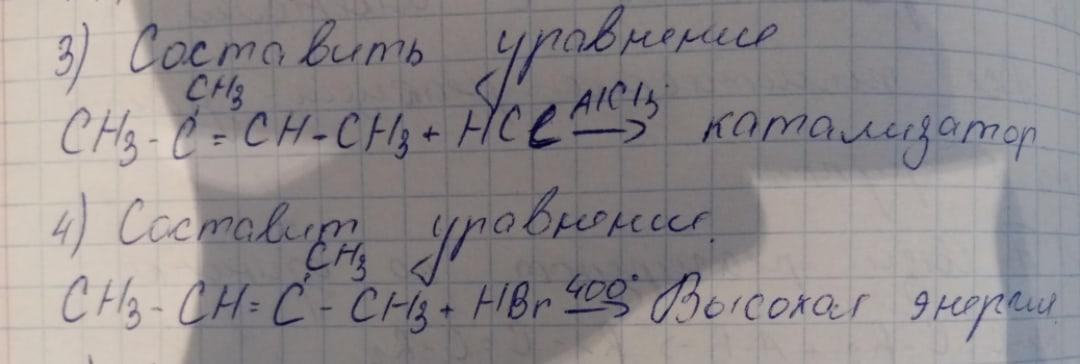 3) Составить уравнение
CH3
CH3-C=CH-CH3+HCl AlCl3 → катализатор
4) Составит уравнение.
CH3
CH3-CH=C-CH3+HBr 400° → Высокая энергия